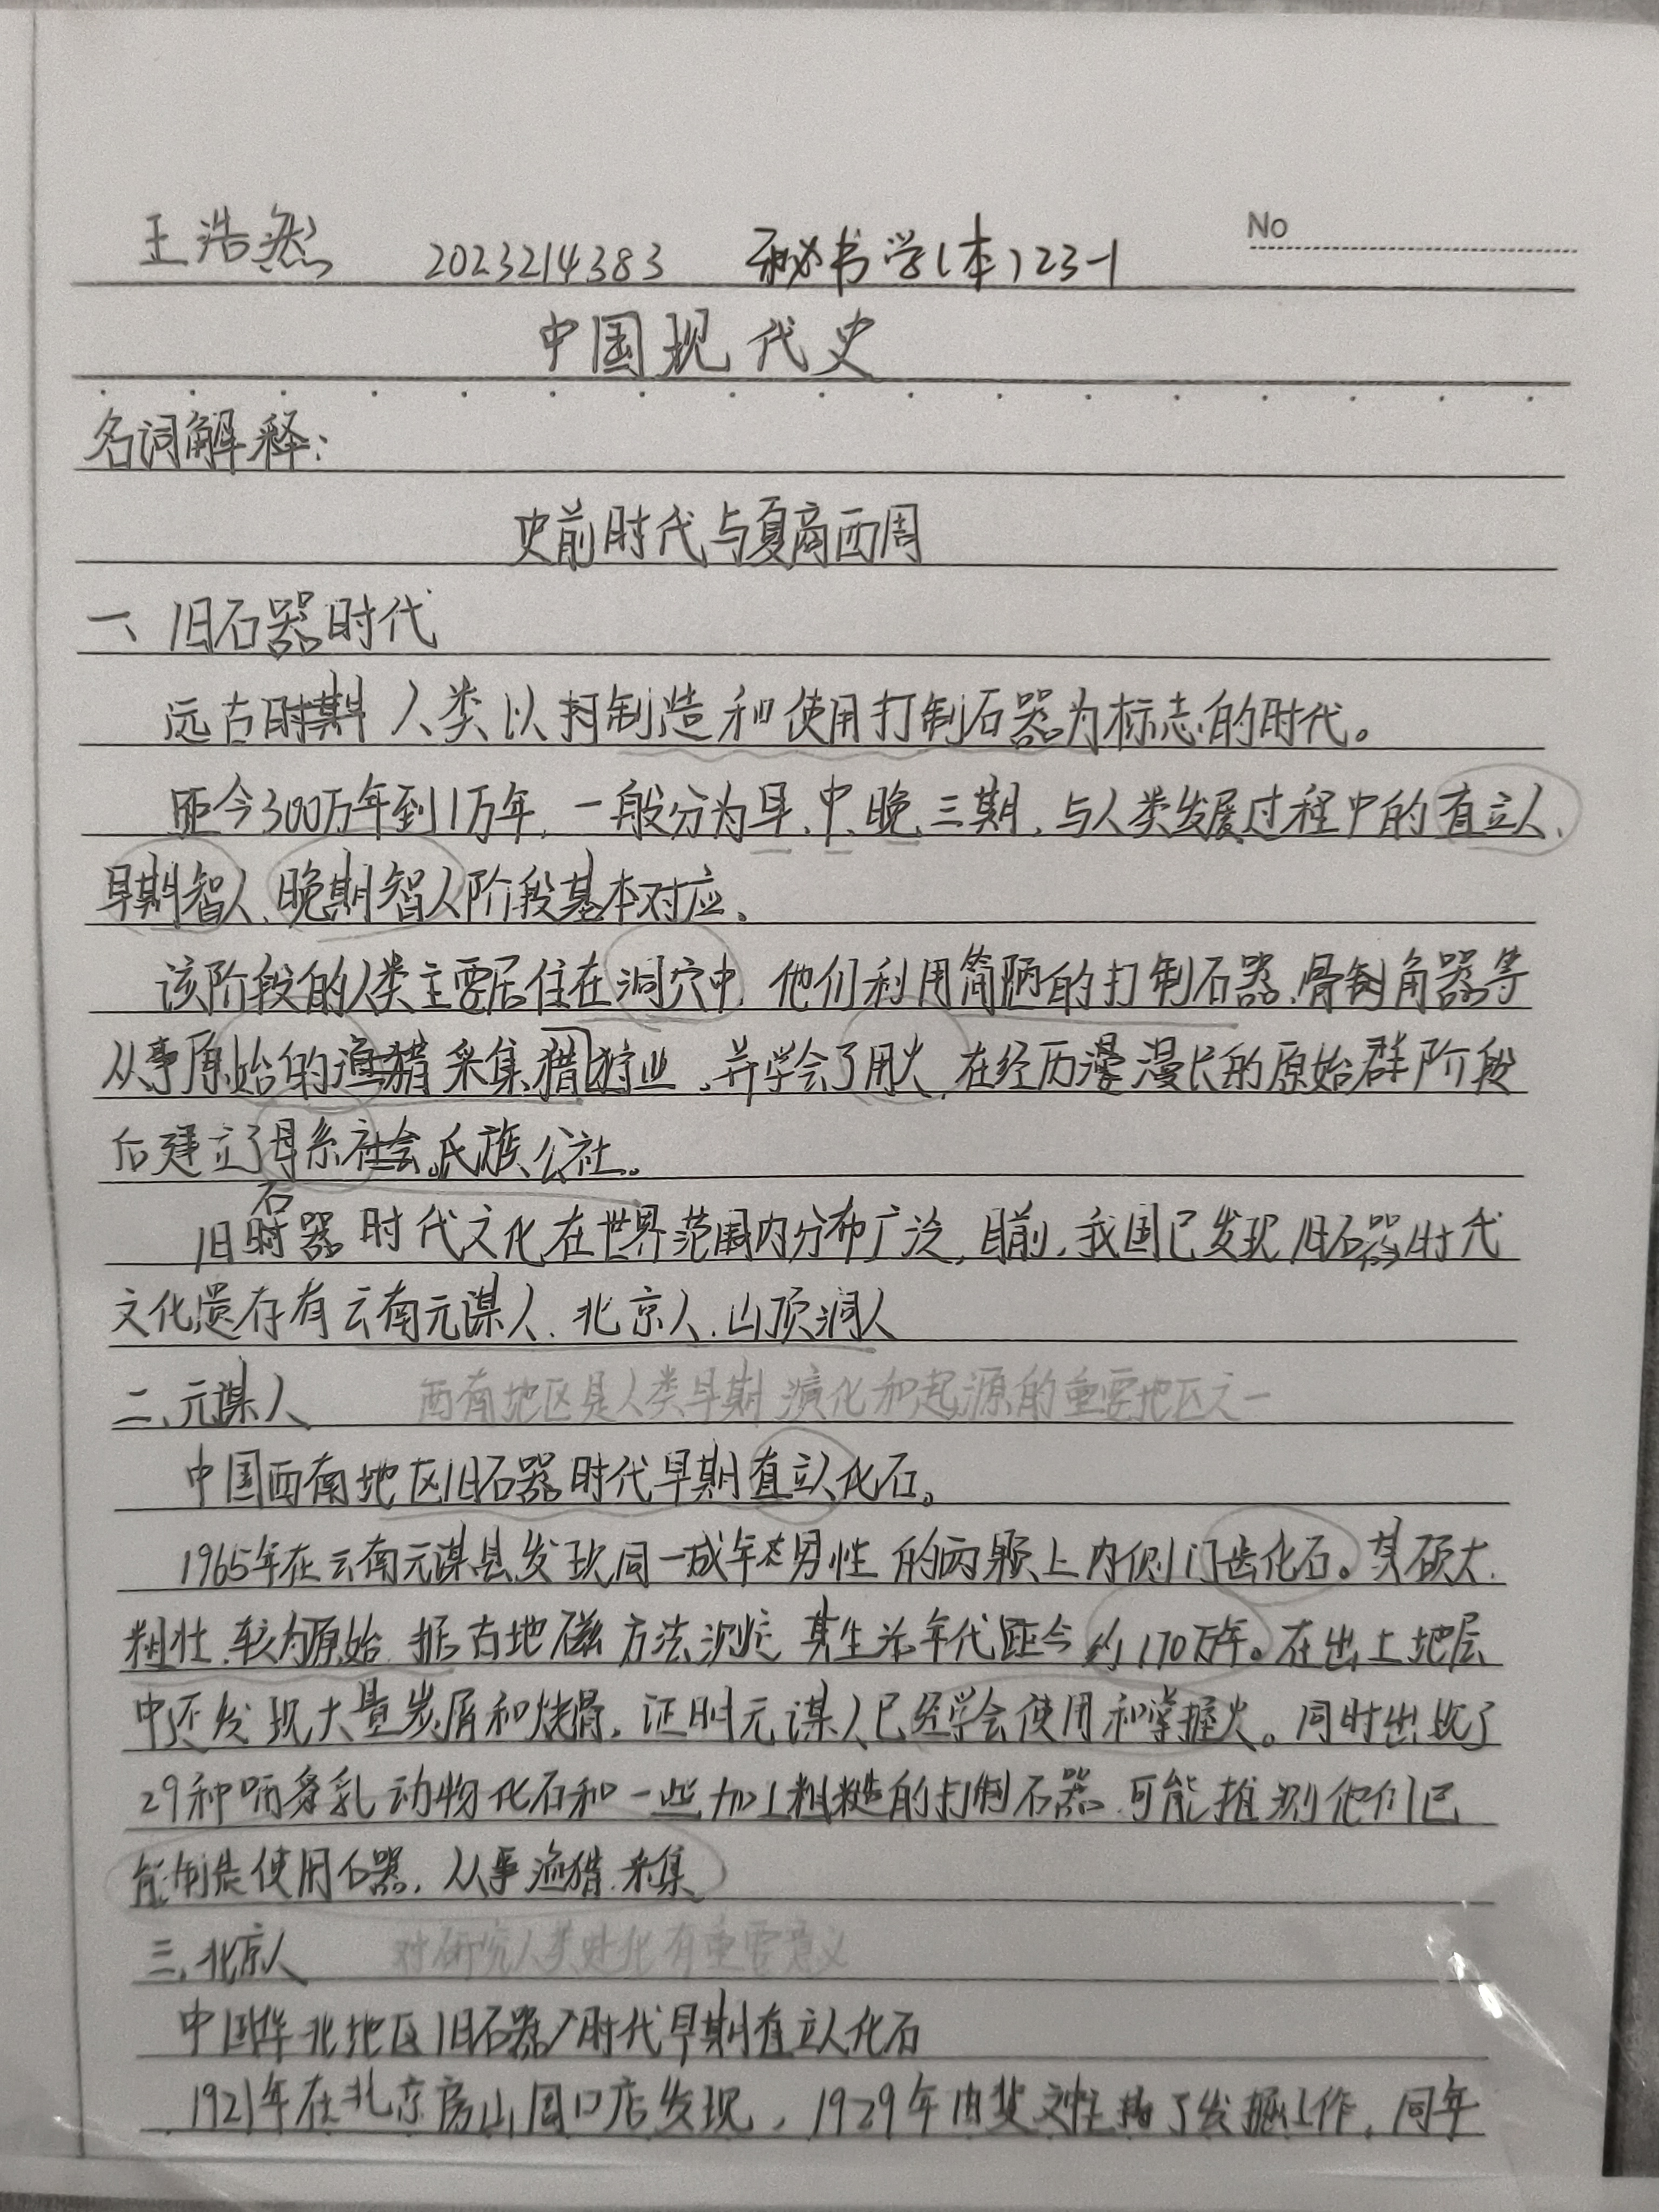 王浩然 2023214383 秘书学(本)23-1 No
中国现代史
名词解释:
史前时代与夏商西周
一、旧石器时代
远古时期 人类以制造和使用打制石器为标志的时代。
距今300万年到1万年,一般分为早、中、晚三期,与人类发展过程中的直立人、
早期智人、晚期智人阶段基本对应。
该阶段的人类主要居住在洞穴中,他们利用简陋的打制石器、骨制角器等
从事原始的采集狩业,并学会了用火,在经历漫长的原始群阶段
后建立了母系氏族公社。
旧石器时代文化在世界范围内分布广泛,目前,我国已发现旧石器时代
文化遗存有云南元谋人、北京人、山顶洞人
二、元谋人 西南地区是人类早期演化和起源的重要地区之一
中国西南地区旧石器时代早期直立人化石。
1965年在云南元谋县发现同一成年男性的两颗上内侧门齿化石。其硕大、
粗壮、较为原始,据古地磁方法测定 其生活年代距今约170万年。在出土地层
中还发现大量炭屑和烧骨,证明元谋人已经学会使用和掌握火。同时出现了
29种哺乳动物化石和一些加工粗糙的打制石器,可能推测他们已
能制造使用石器,从事渔猎、采集
三、北京人 对研究人类进化有重要意义
中国华北地区旧石器时代早期直立人化石
1921年在北京房山周口店发现,1929年由裴文中了发掘工作,同年